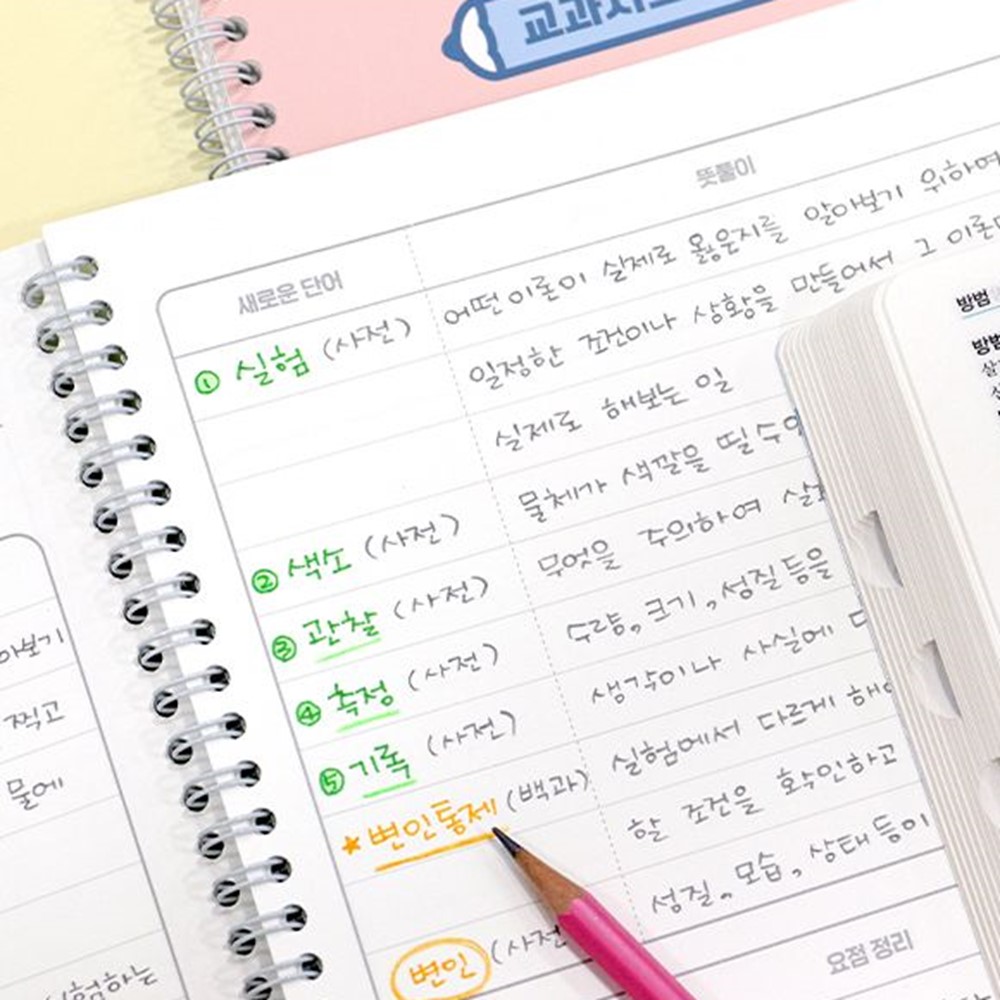 교과서
뜻풀이
새로운 단어
① 실험 (사전)
어떤 이론이 실제로 옳은지를 알아보기 위하여
일정한 조건이나 상황을 만들어서 그 이론
실제로 해보는 일
② 색소 (사전)
물체가 색깔을 띨 수
③ 관찰 (사전)
무엇을 주의하여
④ 측정 (사전)
수량, 크기, 성질 등을
⑤ 기록 (사전)
생각이나 사실에
★ 변인통제 (백과)
실험에서 다르게
할 조건을 확인하고
변인 (사전
성질, 모습, 상태 등이
요점 정리
아보기
찍고
물에
실험하는
방법
방법